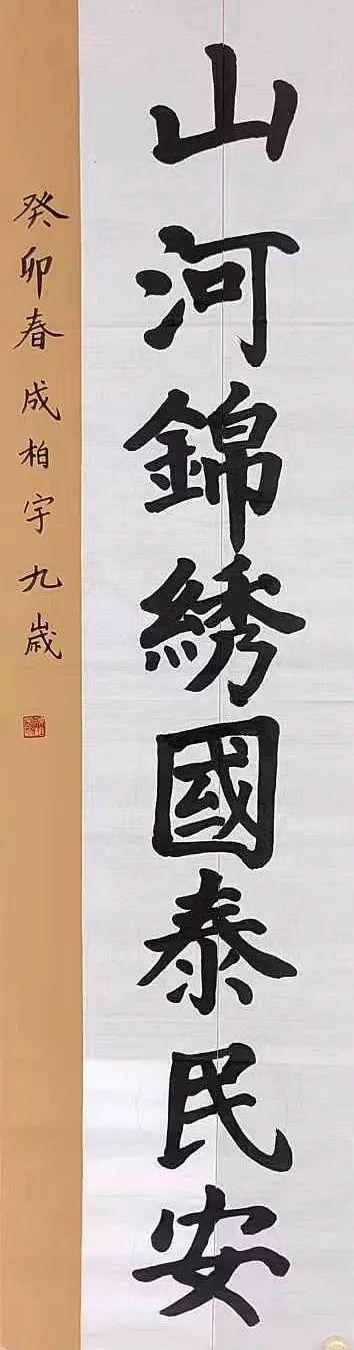 山河錦綉國泰民安
癸卯春成柏宇九歲